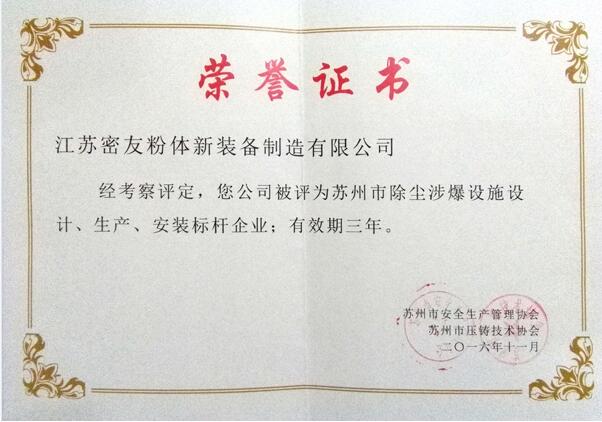 荣誉证书
江苏密友粉体新装备制造有限公司
经考察评定，您公司被评为苏州市除尘涉爆设施设
计、生产、安装标杆企业；有效期三年。
苏州市安全生产管理协会
苏州市压铸技术协会
二〇一六年十一月